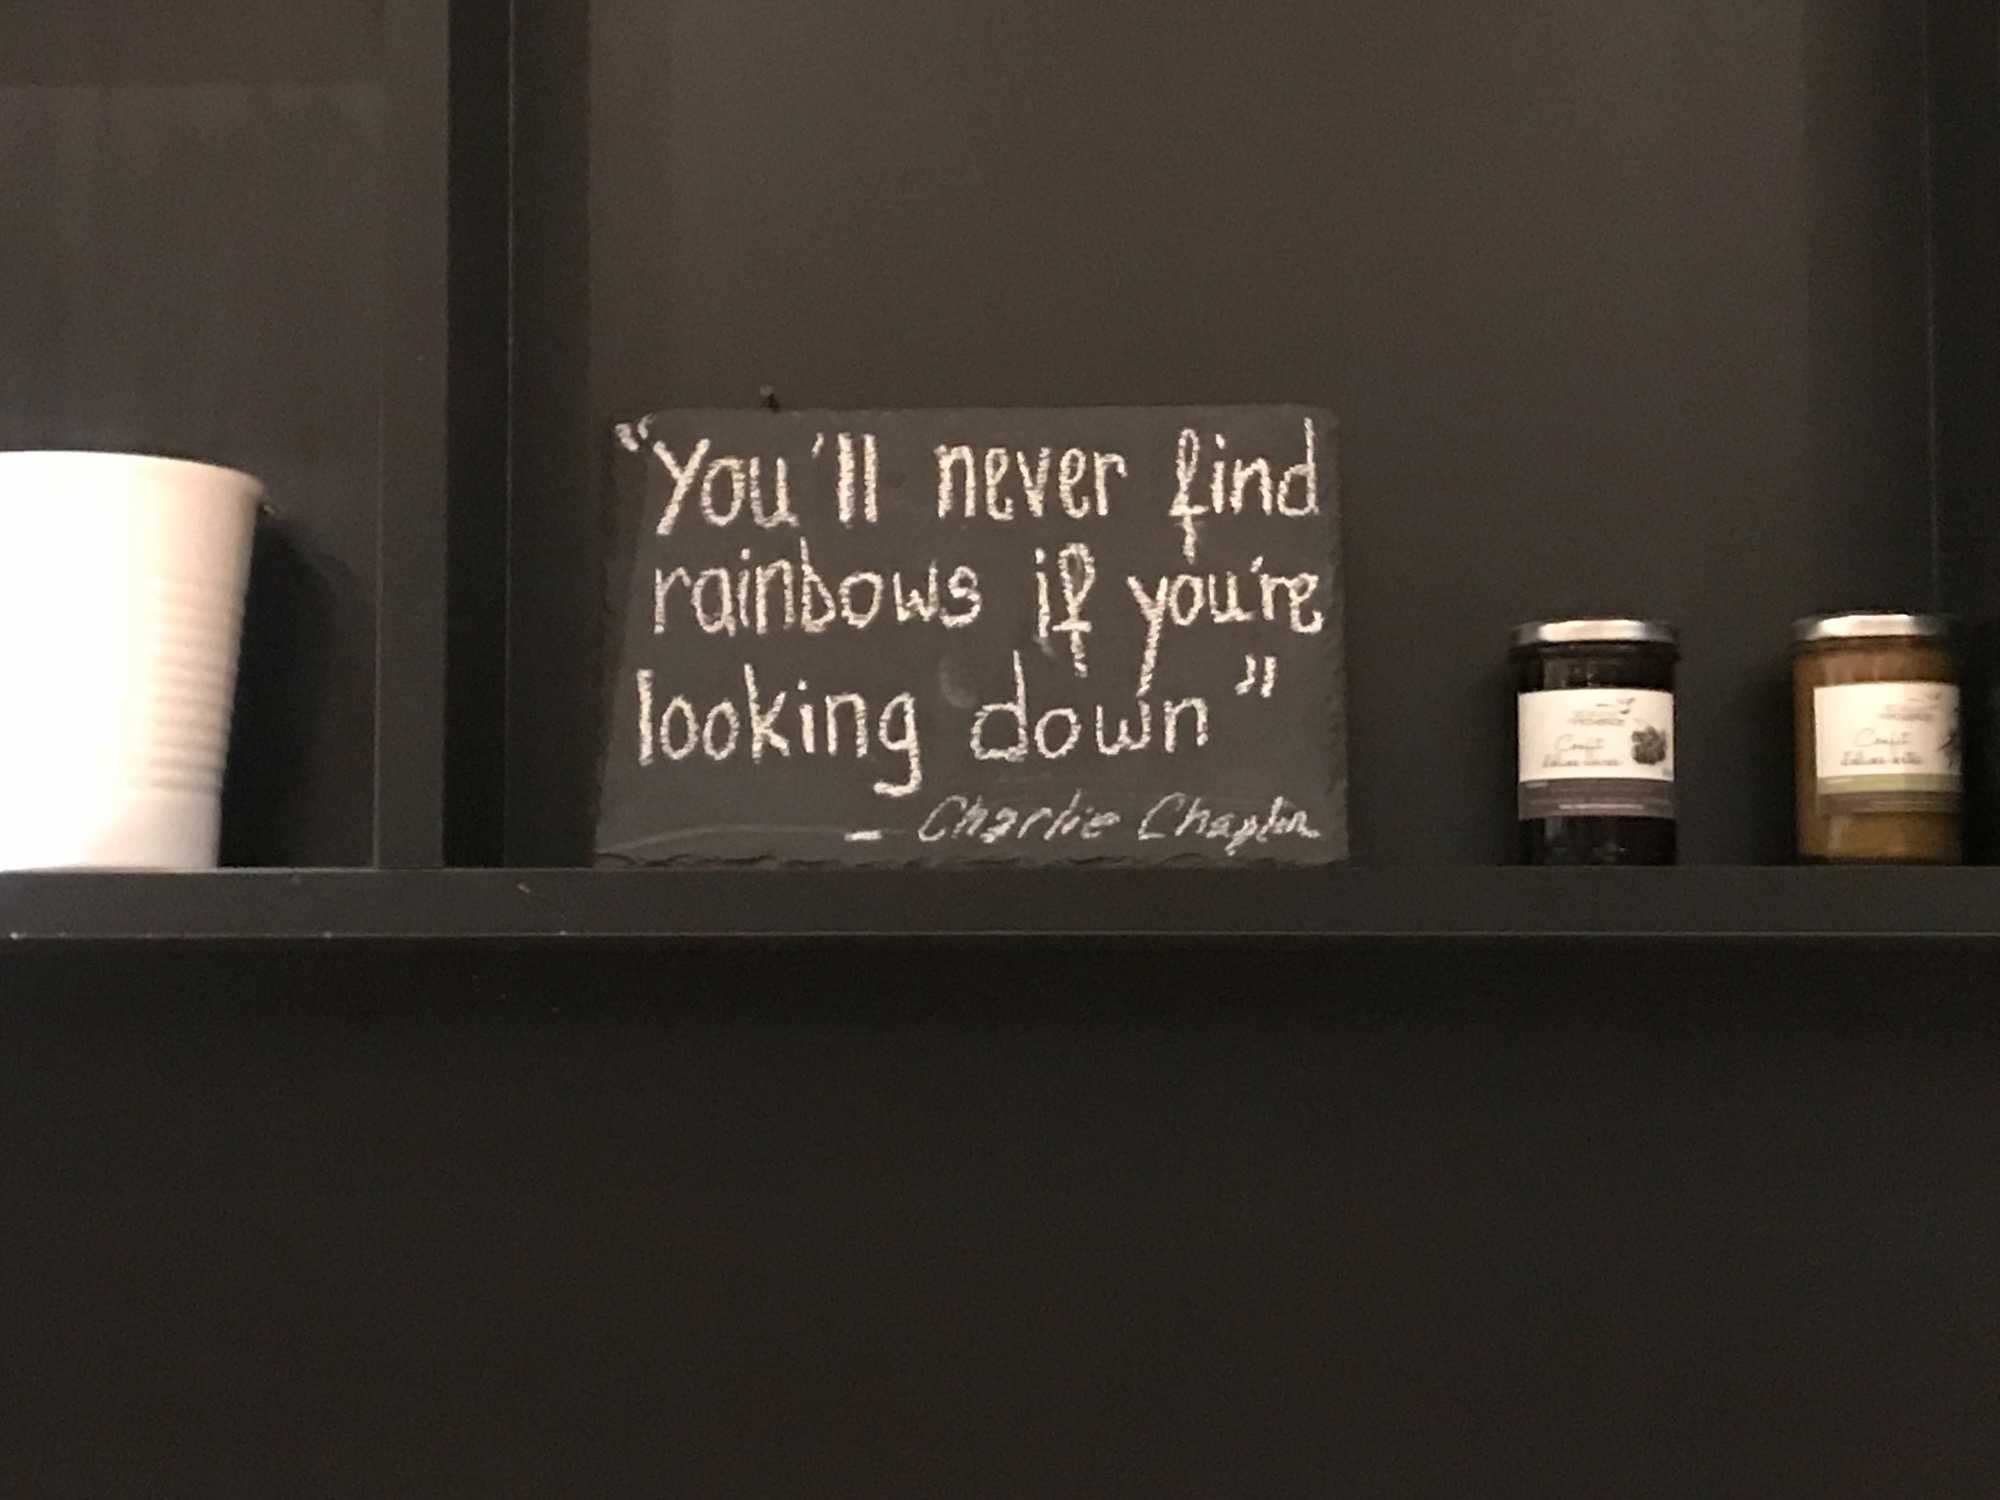 "You'll never find
rainbows if you're
looking down"
- Charlie Chaplin
Confit
Confit